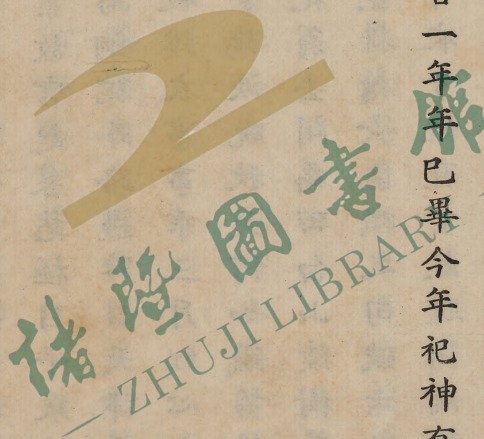 一年年巳畢今年祀神
諸暨圖書館
ZHUJI LIBRARY